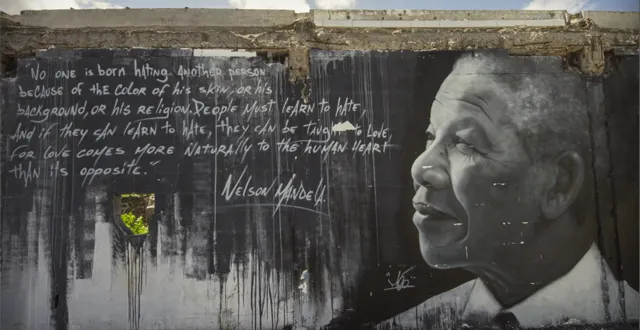 "No one is born hating another person
because of the color of his skin, or his
background, or his religion. People must learn to hate,
and if they can learn to hate, they can be taught to love,
for love comes more naturally to the human heart
than its opposite."
Nelson Mandela